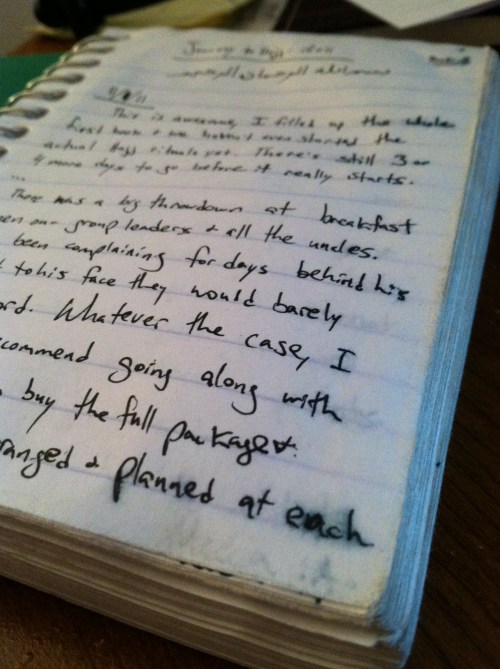 Journey to Hajj - 2011
بسم الله الرحمن الرحيم
This is awesome, I filled up the whole
first book & we haven't even started the
actual Hajj rituals yet. There's still 3 or
4 more days to go before it really starts.
...
There was a big throwdown at breakfast
our group leaders & all the uncles.
been complaining for days behind his
to his face they would barely
Whatever the case, I
going along with
buy the full package
& planned at each